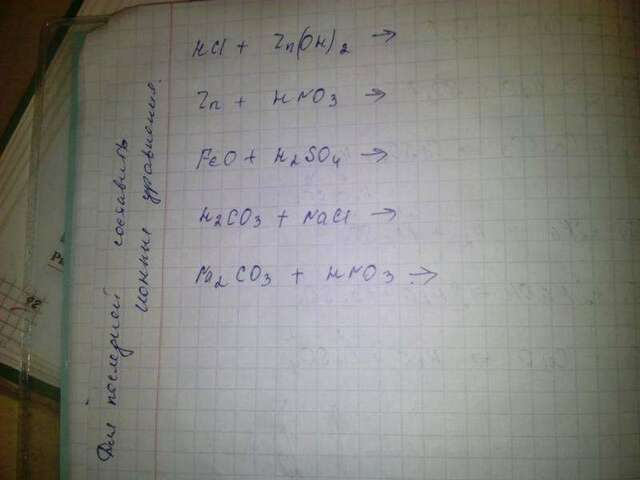 HCl + Zn(OH)2 →
Zn + HNO3 →
FeO + H2SO4 →
H2CO3 + NaCl →
Na2CO3 + HNO3 →
Для последней составить
ионные уравнения.